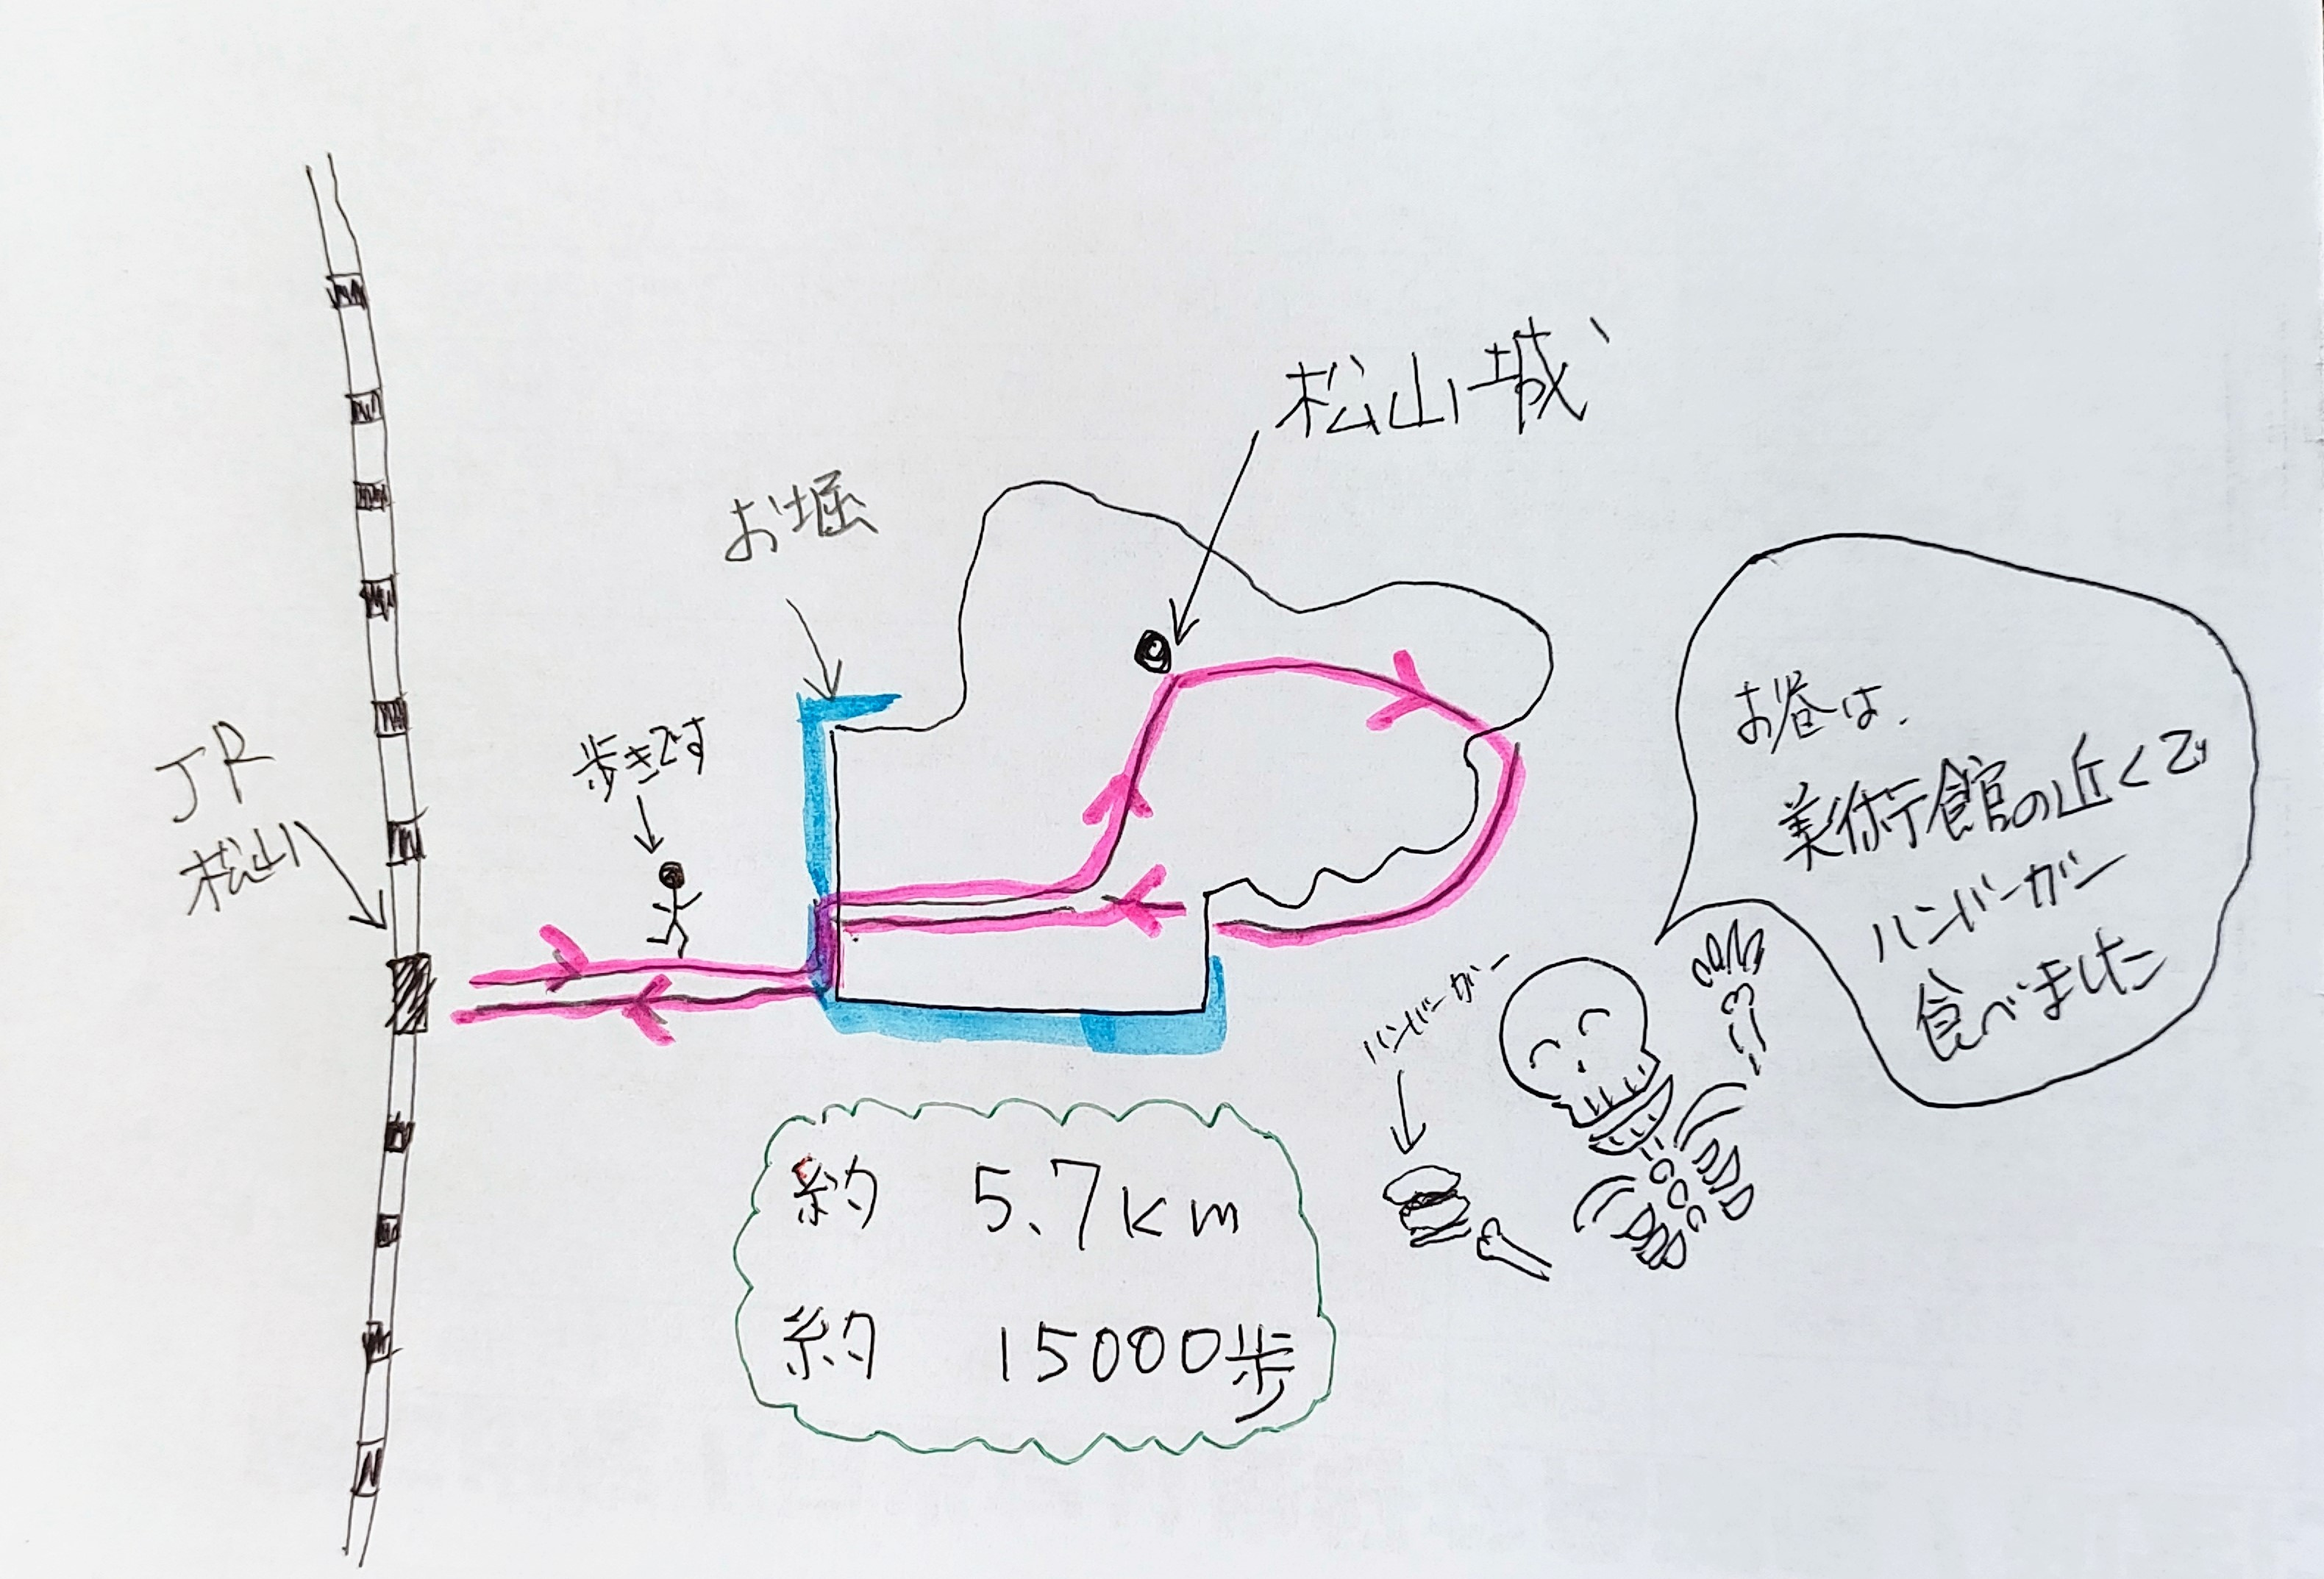 松山城
お堀
JR
松山
歩きです
お昼は、
美術館の近くで
ハンバーガー
食べました
ハンバーガー
約 5.7km
約 15000歩